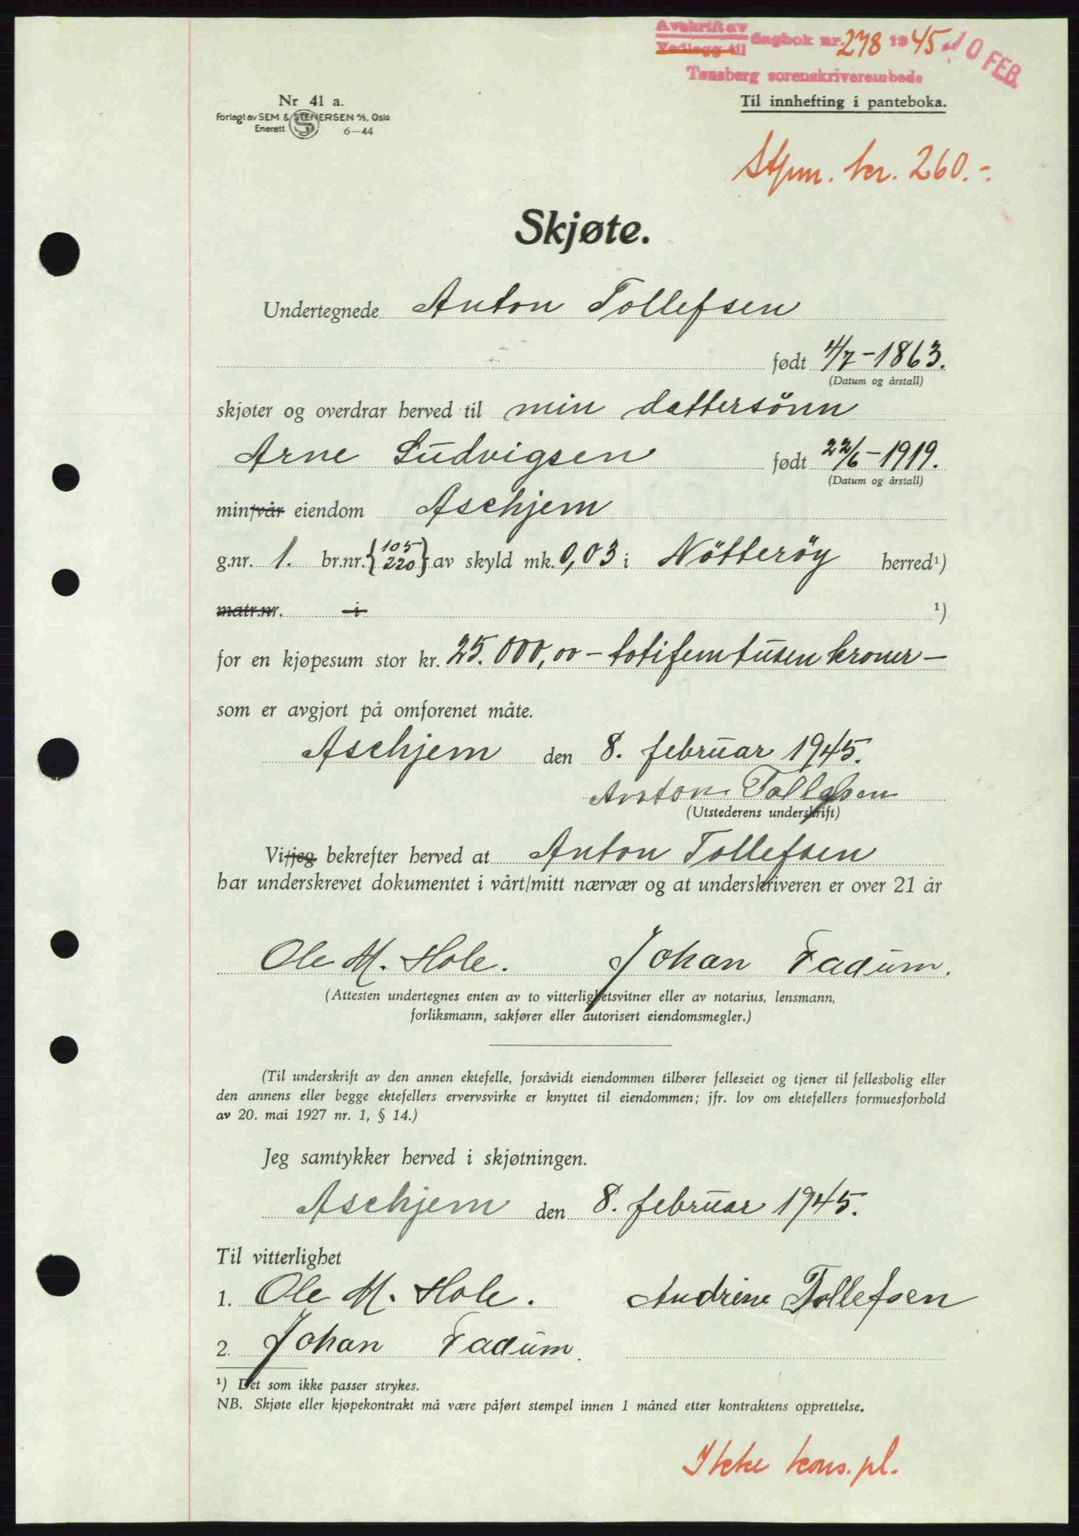 Avskrift av
Vedlegg til dagbok nr. 278 1945 10 FEB.
Tønsberg sorenskriverembede
Nr 41 a.
Forlagt av SEM & STENERSEN A/S, Oslo
Enerett 6—44
Til innhefting i panteboka.
Stpm. kr. 260.-
Skjøte.
Undertegnede Anton Tollefsen
født 4/7-1863.
(Datum og årstall)
skjøter og overdrar herved til min dattersönn
Arne Ludvigsen født 22/6-1919.
(Datum og årstall)
min/vår eiendom Aschjem
g.nr. 1. br.nr. {105 220} av skyld mk. 0,03 i Nötteröy herred¹)
matr.nr. i ¹)
for en kjøpesum stor kr. 25.000,00 - totifemtusen kroner -
som er avgjort på omforenet måte.
Aschjem den 8. februar 1945.
Anton Tollefsen
(Utstederens underskrift)
Vi/jeg bekrefter herved at Anton Tollefsen
har underskrevet dokumentet i vårt/mitt nærvær og at underskriveren er over 21 år
Ole M. Hole. Johan Fadum.
(Attesten undertegnes enten av to vitterlighetsvitner eller av notarius, lensmann,
forliksmann, sakfører eller autorisert eiendomsmegler.)
(Til underskrift av den annen ektefelle, forsåvidt eiendommen tilhører felleseiet og tjener til fellesbolig eller
den annens eller begge ektefellers ervervsvirke er knyttet til eiendommen; jfr. lov om ektefellers formuesforhold
av 20. mai 1927 nr. 1, § 14.)
Jeg samtykker herved i skjøtningen.
Aschjem den 8. februar 1945.
Til vitterlighet
1. Ole M. Hole. Andrine Tollefsen
2. Johan Fadum.
¹) Det som ikke passer strykes.
NB. Skjøte eller kjøpekontrakt må være påført stempel innen 1 måned etter kontraktens opprettelse.
Ikke kons.pl.